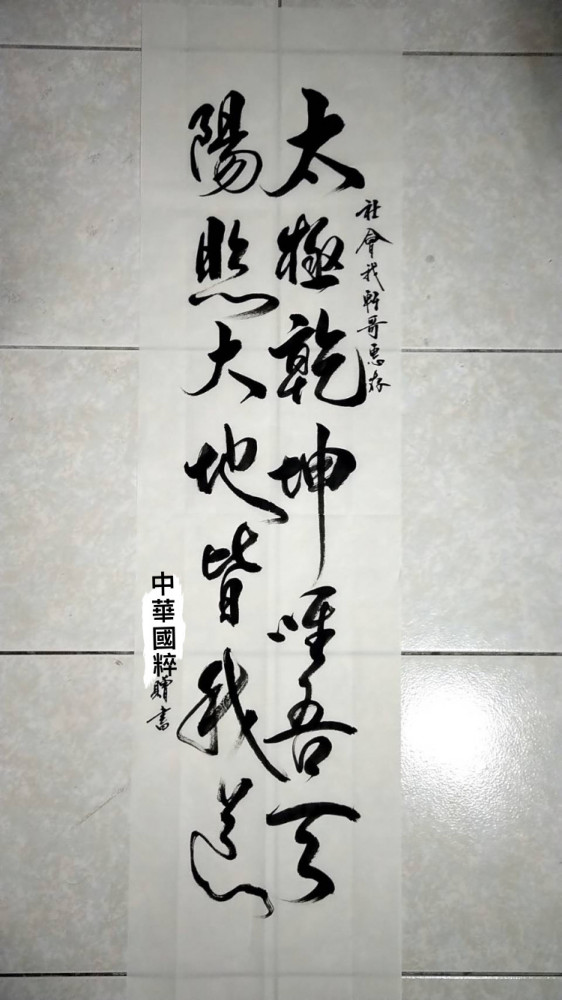 社會我軒哥惠存
太極乾坤唯吾天
陽照大地皆我道
中華國粹贈書